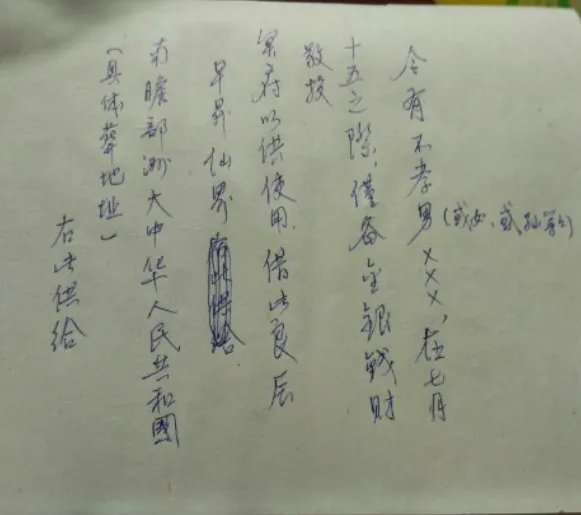 今有不孝男×××，在七月
（或女、或孙等）
十五之际，僅备金银钱财
敬投
冥府以供使用，借此良辰
早昇仙界
南瞻部洲大中华人民共和國
（具体葬地址）
右此供给